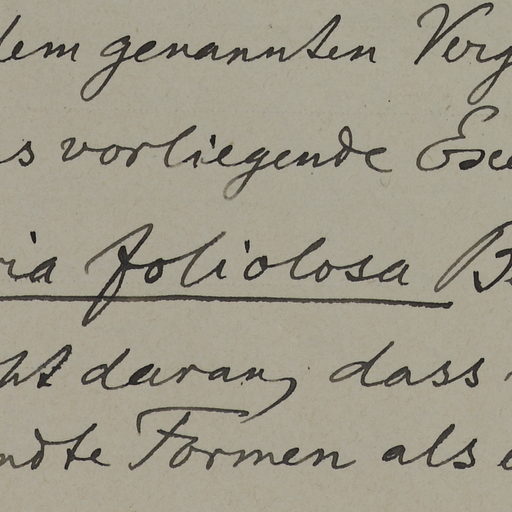 dem genannten Verg
s vorliegende Exe
ria foliolosa B
ht daran, dass
ndte Formen als